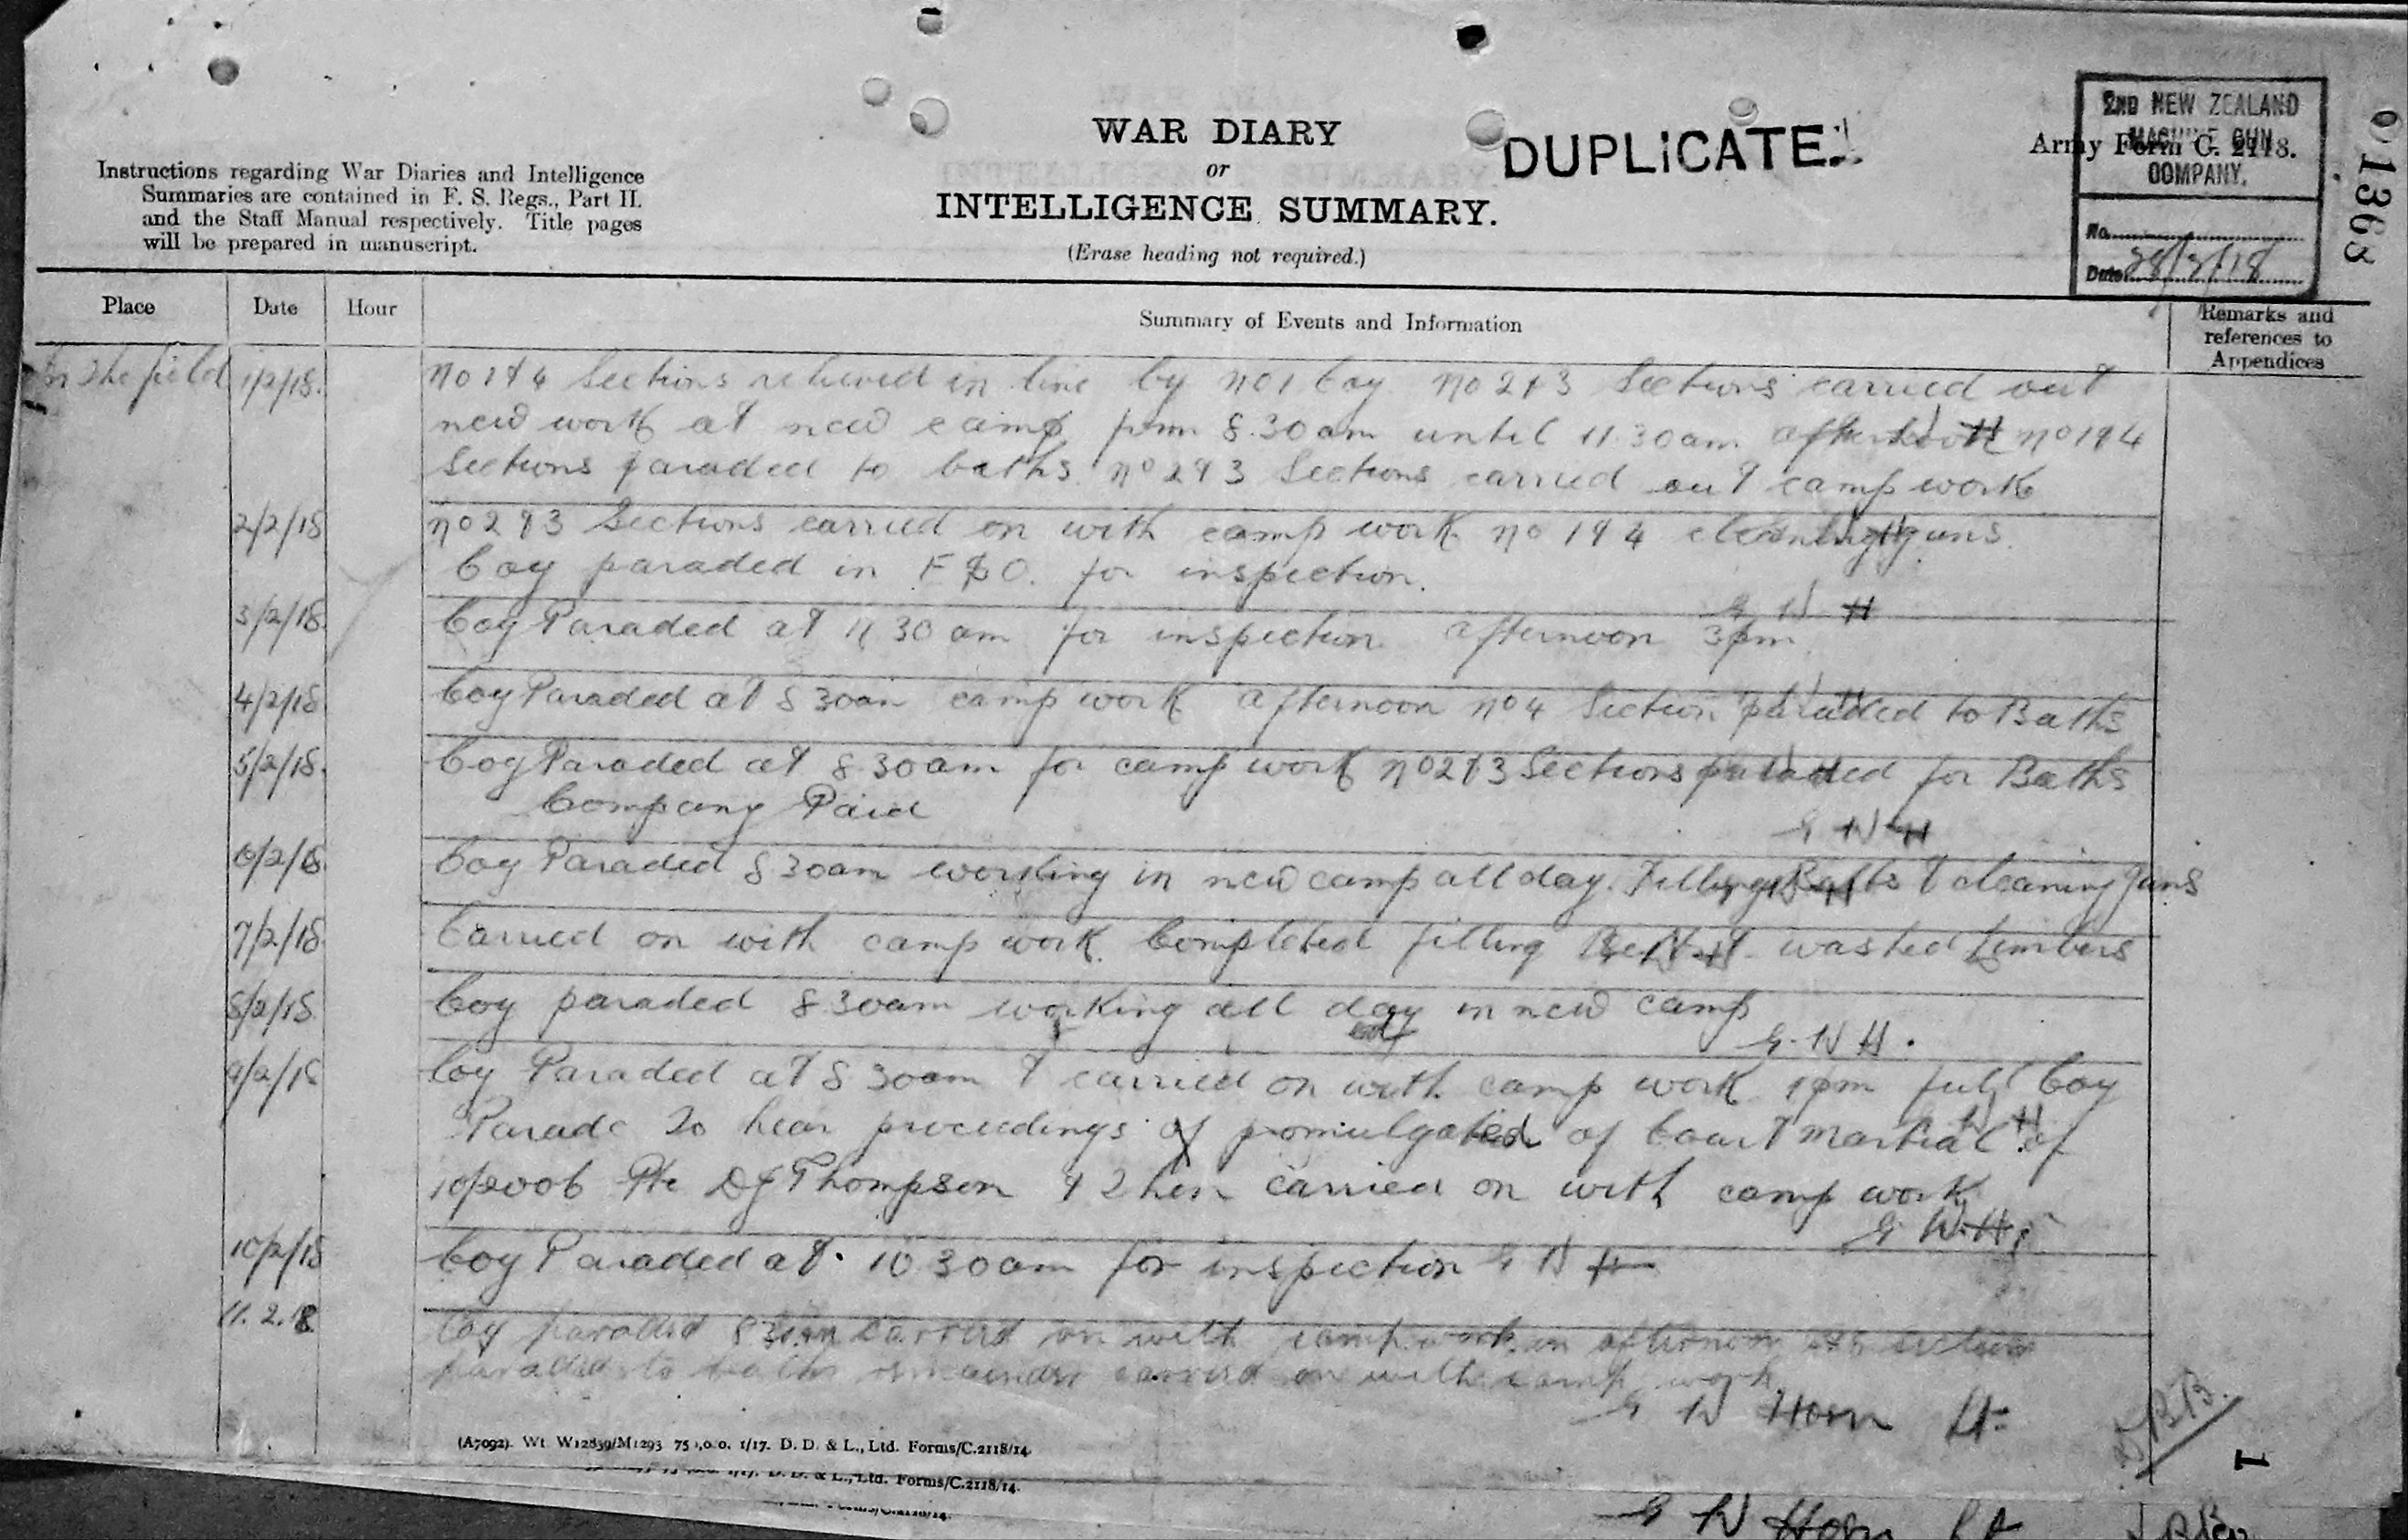 WAR DIARY
or
INTELLIGENCE SUMMARY.
(Erase heading not required.)
DUPLICATE.
Army Form C. 2118.
2ND NEW ZEALAND
MACHINE GUN
COMPANY.
No.
Date
01363
Instructions regarding War Diaries and Intelligence
Summaries are contained in F. S. Regs., Part II.
and the Staff Manual respectively. Title pages
will be prepared in manuscript.
Place Date Hour Summary of Events and Information Remarks and
references to
Appendices
In the field 1/2/18. No 1 & 4 Sections relieved in line by No 1 Coy No 2 & 3 Sections carried out
new work at new camp from 8.30am until 11.30am afternoon No 1 & 4
Sections paraded to baths. No 2 & 3 Sections carried out camp work
G W H
2/2/18 No 2 & 3 Sections carried on with camp work No 1 & 4 cleaning guns.
Coy paraded in F.S.O. for inspection.
G W H
3/2/18 Coy Paraded at 11 30 am for inspection afternoon 3pm
4/2/18 Coy Paraded at 8 30am camp work afternoon No 4 Section paraded to Baths
5/2/18. Coy Paraded at 8.30am for camp work No 2 & 3 Sections paraded for Baths
Company Paid
G W H
6/2/18 Coy Paraded 8 30am working in new camp all day. Filling Belts & cleaning Guns
7/2/18 Carried on with camp work. Completed filling Belts & washed Limbers
8/2/18 Coy paraded 8.30am working all day in new camp
G. W H.
9/2/18 Coy Paraded at 8.30am & carried on with camp work 1pm full Coy
Parade to hear proceedings of promulgated of Court Martial of
10/2006 Pte D J Thompson & then carried on with camp work
G W. H.
10/2/18 Coy Paraded at 10 30am for inspection G W H
11.2.18 Coy paraded 8 30am carried on with camp work in afternoon section
paraded to baths remainder carried on with camp work
G W Horn Lt.
(A7092). Wt. W12859/M1293 75 ,0.0. 1/17. D. D. & L., Ltd. Forms/C.2118/14.
D. D. & L., Ltd. Forms/C.2118/14.
G W Horn Lt
1